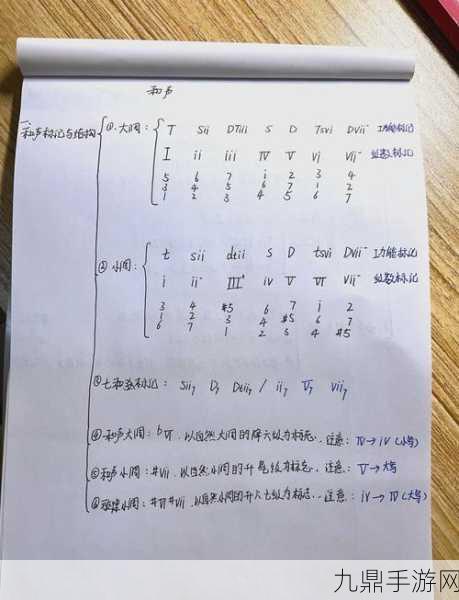 和声
一、和声标记与结构
① 大调: T Sii DTiii S D Tsvi Dvii° 功能标记
I ii iii IV V vi vii° 级数标记
5 6 7 i 2 3 4
3 4 5 6 7 1 2
1 2 3 4 5 6 7
② 小调: t sii dtii S D tsvi Dvii° 功能标记
i ii° III⁺ iv V VI vii° 级数标记
3 4 #5 6 7 i 2
1 2 3 4 #5 6 7
6 7 1 2 3 4 #5
③ 七和弦标记: Sii7 D7 Dtii7 / ii7 V7 vii7
④ 和声大调: bVI. 以自然大调的降六级为标志. 注意: IV→iV (小写)
⑤ 和声小调: #vii. 以自然小调的升七级为标志. 注意: V→大写
⑥ 旋律小调: #VI #vii. 以自然小调的升六七级为标志. 注意: iV→IV (大写)
九鼎手游网